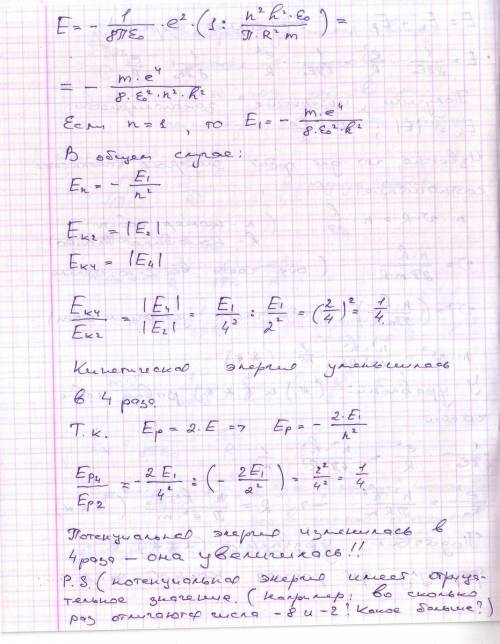 E = - 1/(8πε₀) · e² · (1 : (n²h²·ε₀)/(π·R²m)) =
= - (m·e⁴)/(8·ε₀²·n²·h²)
Если n=1, то E₁ = - (m·e⁴)/(8·ε₀²·h²)
В общем случае:
Eₙ = - E₁/n²
Eк2 = |E₂|
Eк4 = |E₄|
Eк4/Eк2 = |E₄|/|E₂| = E₁/4² : E₁/2² = (2/4)² = 1/4.
Кинетическая энергия уменьшилась
в 4 раза
Т.к. Eр = 2·E => Eр = - 2·E₁/n²
Eр4/Eр2 = - 2E₁/4² : (- 2E₁/2²) = 2²/4² = 1/4.
Потенциальная энергия изменилась в
4 раза – она увеличилась!!
P.S. (потенциальная энергия имеет отрица-
тельное значение. (Например, во сколько
раз отличаются числа -8 и -2? Какое больше?)